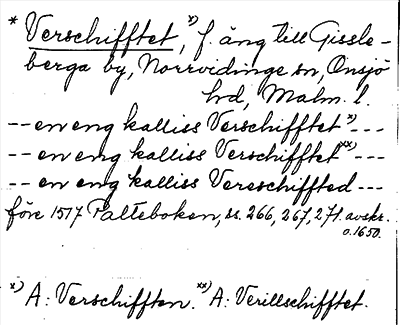 * Verschifftet, x) f. äng till Gissle-
berga by, Norrvidinge sn, Onsjö
hd, Malm. l.
-- en eng kalliss Verschifftet x) ---
-- en eng kalliss Verschifftet xx) ---
-- en eng kalliss Vereschiffted ---
före 1517 Palteboken, ss. 266, 267, 271. avskr.
o. 1650.
x) A: Verschifften. xx) A: Verillschifftet.